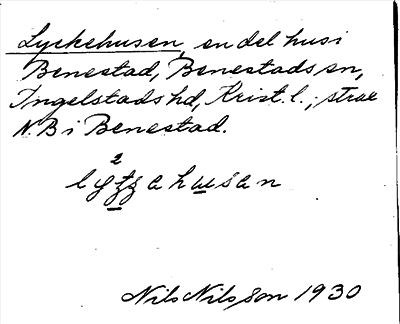 Lyckehusen, en del hus i
Benestad, Benestads sn,
Ingelstads hd, Krist. l.; strax
N. B i Benestad.
2
Nils Nilsson 1930